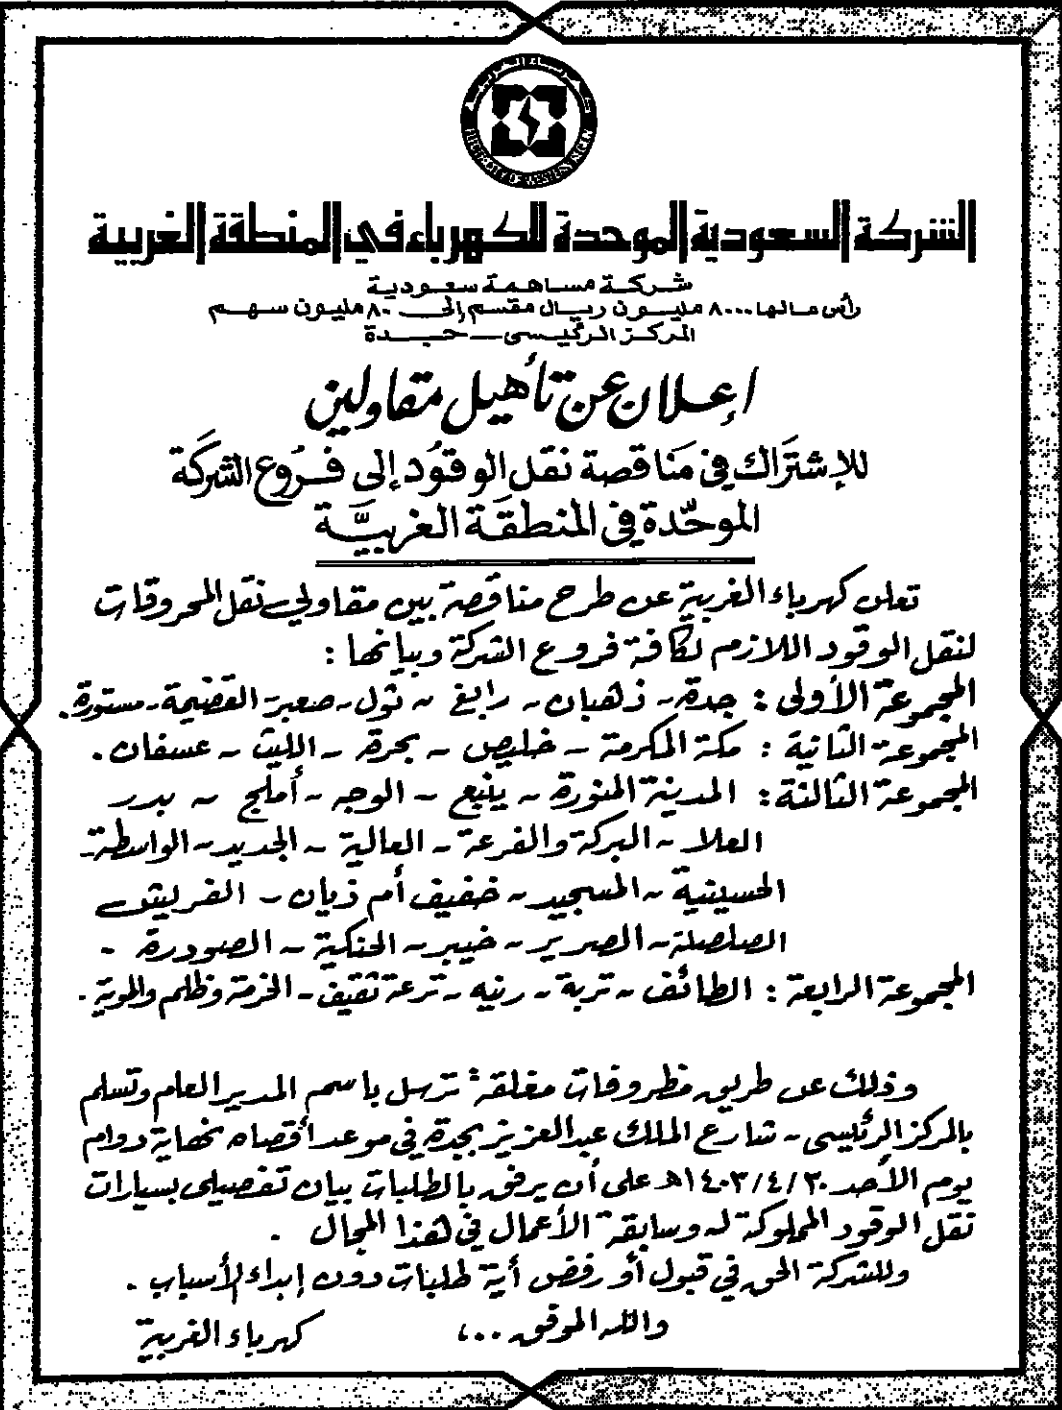 الشركة السعودية الموحدة للكهرباء في المنطقة الغربية
شركة مساهمة سعودية
رأس مالها ٨٠٠٠ مليون ريال مقسم إلى ٨٠ مليون سهم
المركز الرئيسى - جدة
إعلان عن تأهيل مقاولين
للإشتراك في مناقصة نقل الوقود إلى فروع الشركة
الموحّدة في المنطقة الغربيَّة
تعلن كهرباء الغربية عن طرح مناقصة بين مقاولي نقل المحروقات
لنقل الوقود اللازم لكافة فروع الشركة وبيانها :
المجموعة الأولى : جدة - ذهبان - رابغ - ثول - صعبر - القضيمة - مستورة .
المجموعة الثانية : مكة المكرمة - خليص - بحرة - الليث - عسفان .
المجموعة الثالثة : المدينة المنورة - ينبع - الوجه - أملج - بدر
العلا - البركة والفرعة - العالية - الجديد - الواسطة -
الحسينية - المسجيد - خفيف أم ذيان - القريش
الصلصلة - الصرير - خيبر - الحنكية - الصويدرة -
المجموعة الرابعة : الطائف - تربة - رنيه - ترعة ثقيف - الخرمة وظلم والموية .
وذلك عن طريق مظروفات مغلقة ترسل باسم المدير العام وتسلم
بالمركز الرئيسى - شارع الملك عبد العزيز بجدة في موعد أقصاه نهاية دوام
يوم الأحد ١٤٠٣/٤/٣٠هـ على أن يرفق بالطلبات بيان تفصيلى بسيارات
نقل الوقود المملوكة له وسابقة الأعمال في هذا المجال .
وللشركة الحق في قبول أو رفض أية طلبات دون إبداء لأسباب .
والله الموفق ..،
كهرباء الغربية